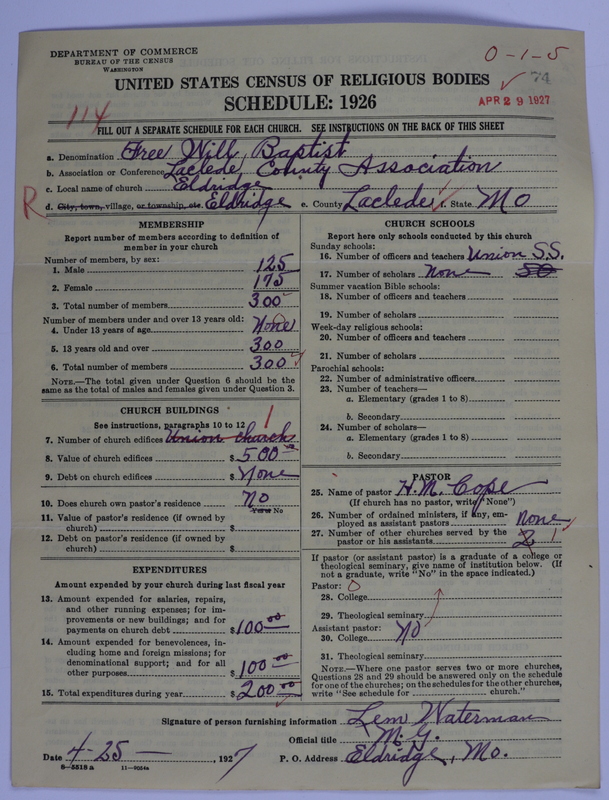 DEPARTMENT OF COMMERCE
BUREAU OF THE CENSUS
WASHINGTON
0-1-5
UNITED STATES CENSUS OF RELIGIOUS BODIES
74
SCHEDULE: 1926
APR 29 1927
114
FILL OUT A SEPARATE SCHEDULE FOR EACH CHURCH. SEE INSTRUCTIONS ON THE BACK OF THIS SHEET
a. Denomination Free Will Baptist
b. Association or Conference Laclede County Association
c. Local name of church Eldridge
R d. City, town, village, or township, etc. Eldridge e. County Laclede f. State Mo
MEMBERSHIP
Report number of members according to definition of
member in your church
Number of members, by sex:
1. Male 125
2. Female 175
3. Total number of members 300
Number of members under and over 13 years old:
4. Under 13 years of age None
5. 13 years old and over 300
6. Total number of members 300
NOTE.—The total given under Question 6 should be the
same as the total of males and females given under Question 3.
CHURCH BUILDINGS
See instructions, paragraphs 10 to 12
1
7. Number of church edifices Union church
8. Value of church edifices $ 500 00
9. Debt on church edifices $ None
10. Does church own pastor's residence No
Yes or No
11. Value of pastor's residence (if owned by
church) $
12. Debt on pastor's residence (if owned by
church) $
EXPENDITURES
Amount expended by your church during last fiscal year
13. Amount expended for salaries, repairs,
and other running expenses; for im-
provements or new buildings; and for
payments on church debt $ 100 00
14. Amount expended for benevolences, in-
cluding home and foreign missions; for
denominational support; and for all
other purposes $ 100 00
15. Total expenditures during year $ 200 00
CHURCH SCHOOLS
Report here only schools conducted by this church
Sunday schools:
16. Number of officers and teachers Union S.S.
17. Number of scholars None 50
Summer vacation Bible schools:
18. Number of officers and teachers
19. Number of scholars
Week-day religious schools:
20. Number of officers and teachers
21. Number of scholars
Parochial schools:
22. Number of administrative officers
23. Number of teachers—
a. Elementary (grades 1 to 8)
b. Secondary
24. Number of scholars—
a. Elementary (grades 1 to 8)
b. Secondary
PASTOR
25. Name of pastor H. M. Cope
(If church has no pastor, write "None")
26. Number of ordained ministers, if any, em-
ployed as assistant pastors None
27. Number of other churches served by the
pastor or his assistants 2 1
If pastor (or assistant pastor) is a graduate of a college or
theological seminary, give name of institution below. (If
not a graduate, write "No" in the space indicated.)
Pastor: 0
28. College
29. Theological seminary
Assistant pastor: No
30. College
31. Theological seminary
NOTE.—Where one pastor serves two or more churches,
Questions 28 and 29 should be answered only on the schedule
for one of the churches; on the schedules for the other churches,
write "See schedule for church."
Signature of person furnishing information Lem Waterman
Official title M. G.
Date 4-25- , 1927 P. O. Address Eldridge, Mo.
8—5518 a 11—9054a